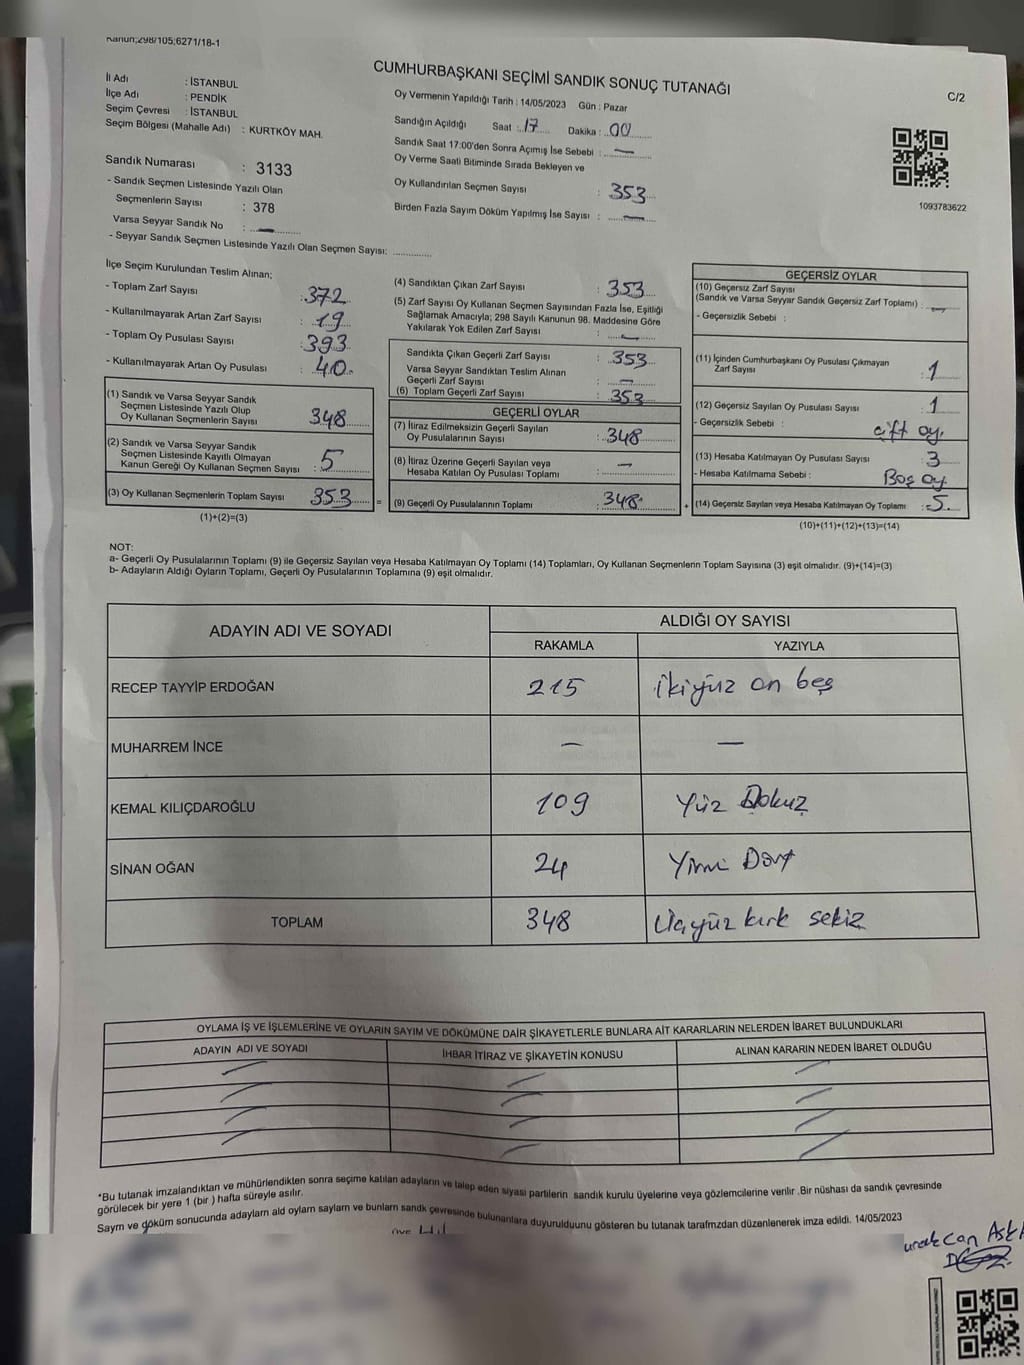 Kanun;298/105;6271/18-1
CUMHURBAŞKANI SEÇİMİ SANDIK SONUÇ TUTANAĞI
C/2
İl Adı : İSTANBUL
İlçe Adı : PENDİK
Seçim Çevresi : İSTANBUL
Seçim Bölgesi (Mahalle Adı) : KURTKÖY MAH.
Sandık Numarası : 3133
- Sandık Seçmen Listesinde Yazılı Olan
Seçmenlerin Sayısı : 378
Varsa Seyyar Sandık No : —
- Seyyar Sandık Seçmen Listesinde Yazılı Olan Seçmen Sayısı: ..............
Oy Vermenin Yapıldığı Tarih : 14/05/2023 Gün : Pazar
Sandığın Açıldığı Saat : 17 Dakika : 00
Sandık Saat 17:00'den Sonra Açımış İse Sebebi : —
Oy Verme Saati Bitiminde Sırada Bekleyen ve
Oy Kullandırılan Seçmen Sayısı : 353
Birden Fazla Sayım Döküm Yapılmış İse Sayısı : —
1093783622
İlçe Seçim Kurulundan Teslim Alınan;
- Toplam Zarf Sayısı : 372
- Kullanılmayarak Artan Zarf Sayısı : 19
- Toplam Oy Pusulası Sayısı : 393
- Kullanılmayarak Artan Oy Pusulası : 40
(1) Sandık ve Varsa Seyyar Sandık
Seçmen Listesinde Yazılı Olup
Oy Kullanan Seçmenlerin Sayısı : 348
(2) Sandık ve Varsa Seyyar Sandık
Seçmen Listesinde Kayıtlı Olmayan
Kanun Gereği Oy Kullanan Seçmen Sayısı : 5
(3) Oy Kullanan Seçmenlerin Toplam Sayısı : 353
(1)+(2)=(3)
(4) Sandıktan Çıkan Zarf Sayısı : 353
(5) Zarf Sayısı Oy Kullanan Seçmen Sayısından Fazla İse, Eşitliği
Sağlamak Amacıyla; 298 Sayılı Kanunun 98. Maddesine Göre
Yakılarak Yok Edilen Zarf Sayısı : —
Sandıkta Çıkan Geçerli Zarf Sayısı : 353
Varsa Seyyar Sandıktan Teslim Alınan
Geçerli Zarf Sayısı : —
(6) Toplam Geçerli Zarf Sayısı : 353
GEÇERLİ OYLAR
(7) İtiraz Edilmeksizin Geçerli Sayılan
Oy Pusulalarının Sayısı : 348
(8) İtiraz Üzerine Geçerli Sayılan veya
Hesaba Katılan Oy Pusulası Toplamı : —
= (9) Geçerli Oy Pusulalarının Toplamı : 348
GEÇERSİZ OYLAR
(10) Geçersiz Zarf Sayısı
(Sandık ve Varsa Seyyar Sandık Geçersiz Zarf Toplamı) : —
- Geçersizlik Sebebi :
(11) İçinden Cumhurbaşkanı Oy Pusulası Çıkmayan
Zarf Sayısı : 1
(12) Geçersiz Sayılan Oy Pusulası Sayısı : 1
- Geçersizlik Sebebi : çift oy.
(13) Hesaba Katılmayan Oy Pusulası Sayısı : 3
- Hesaba Katılmama Sebebi : Boş oy
+ (14) Geçersiz Sayılan veya Hesaba Katılmayan Oy Toplamı : 5
(10)+(11)+(12)+(13)=(14)
NOT:
a- Geçerli Oy Pusulalarının Toplamı (9) ile Geçersiz Sayılan veya Hesaba Katılmayan Oy Toplamı (14) Toplamları, Oy Kullanan Seçmenlerin Toplam Sayısına (3) eşit olmalıdır. (9)+(14)=(3)
b- Adayların Aldığı Oyların Toplamı, Geçerli Oy Pusulalarının Toplamına (9) eşit olmalıdır.
ADAYIN ADI VE SOYADI
ALDIĞI OY SAYISI
RAKAMLA YAZIYLA
RECEP TAYYİP ERDOĞAN 215 ikiyüz on beş
MUHARREM İNCE — —
KEMAL KILIÇDAROĞLU 109 Yüz Dokuz
SİNAN OĞAN 24 Yirmi Dört
TOPLAM 348 Üçyüz kırk sekiz
OYLAMA İŞ VE İŞLEMLERİNE VE OYLARIN SAYIM VE DÖKÜMÜNE DAİR ŞİKAYETLERLE BUNLARA AİT KARARLARIN NELERDEN İBARET BULUNDUKLARI
ADAYIN ADI VE SOYADI İHBAR İTİRAZ VE ŞİKAYETİN KONUSU ALINAN KARARIN NEDEN İBARET OLDUĞU
*Bu tutanak imzalandıktan ve mühürlendikten sonra seçime katılan adayların ve talep eden siyasi partilerin sandık kurulu üyelerine veya gözlemcilerine verilir .Bir nüshası da sandık çevresinde
görülecek bir yere 1 (bir ) hafta süreyle asılır.
Sayım ve döküm sonucunda adayların ald oyların sayların ve bunların sandk çevresinde bulunanlara duyurulduunu gösteren bu tutanak tarafmzdan düzenlenerek imza edildi. 14/05/2023